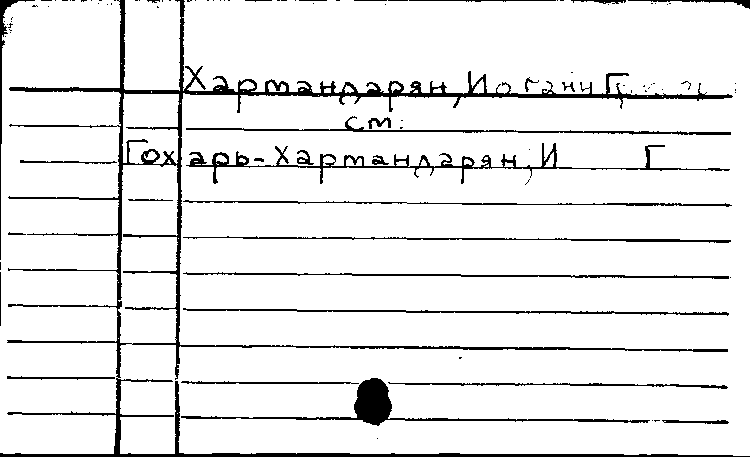 Хармандарян, Иоганн
см.
Гохарь-Хармандарян, И Г